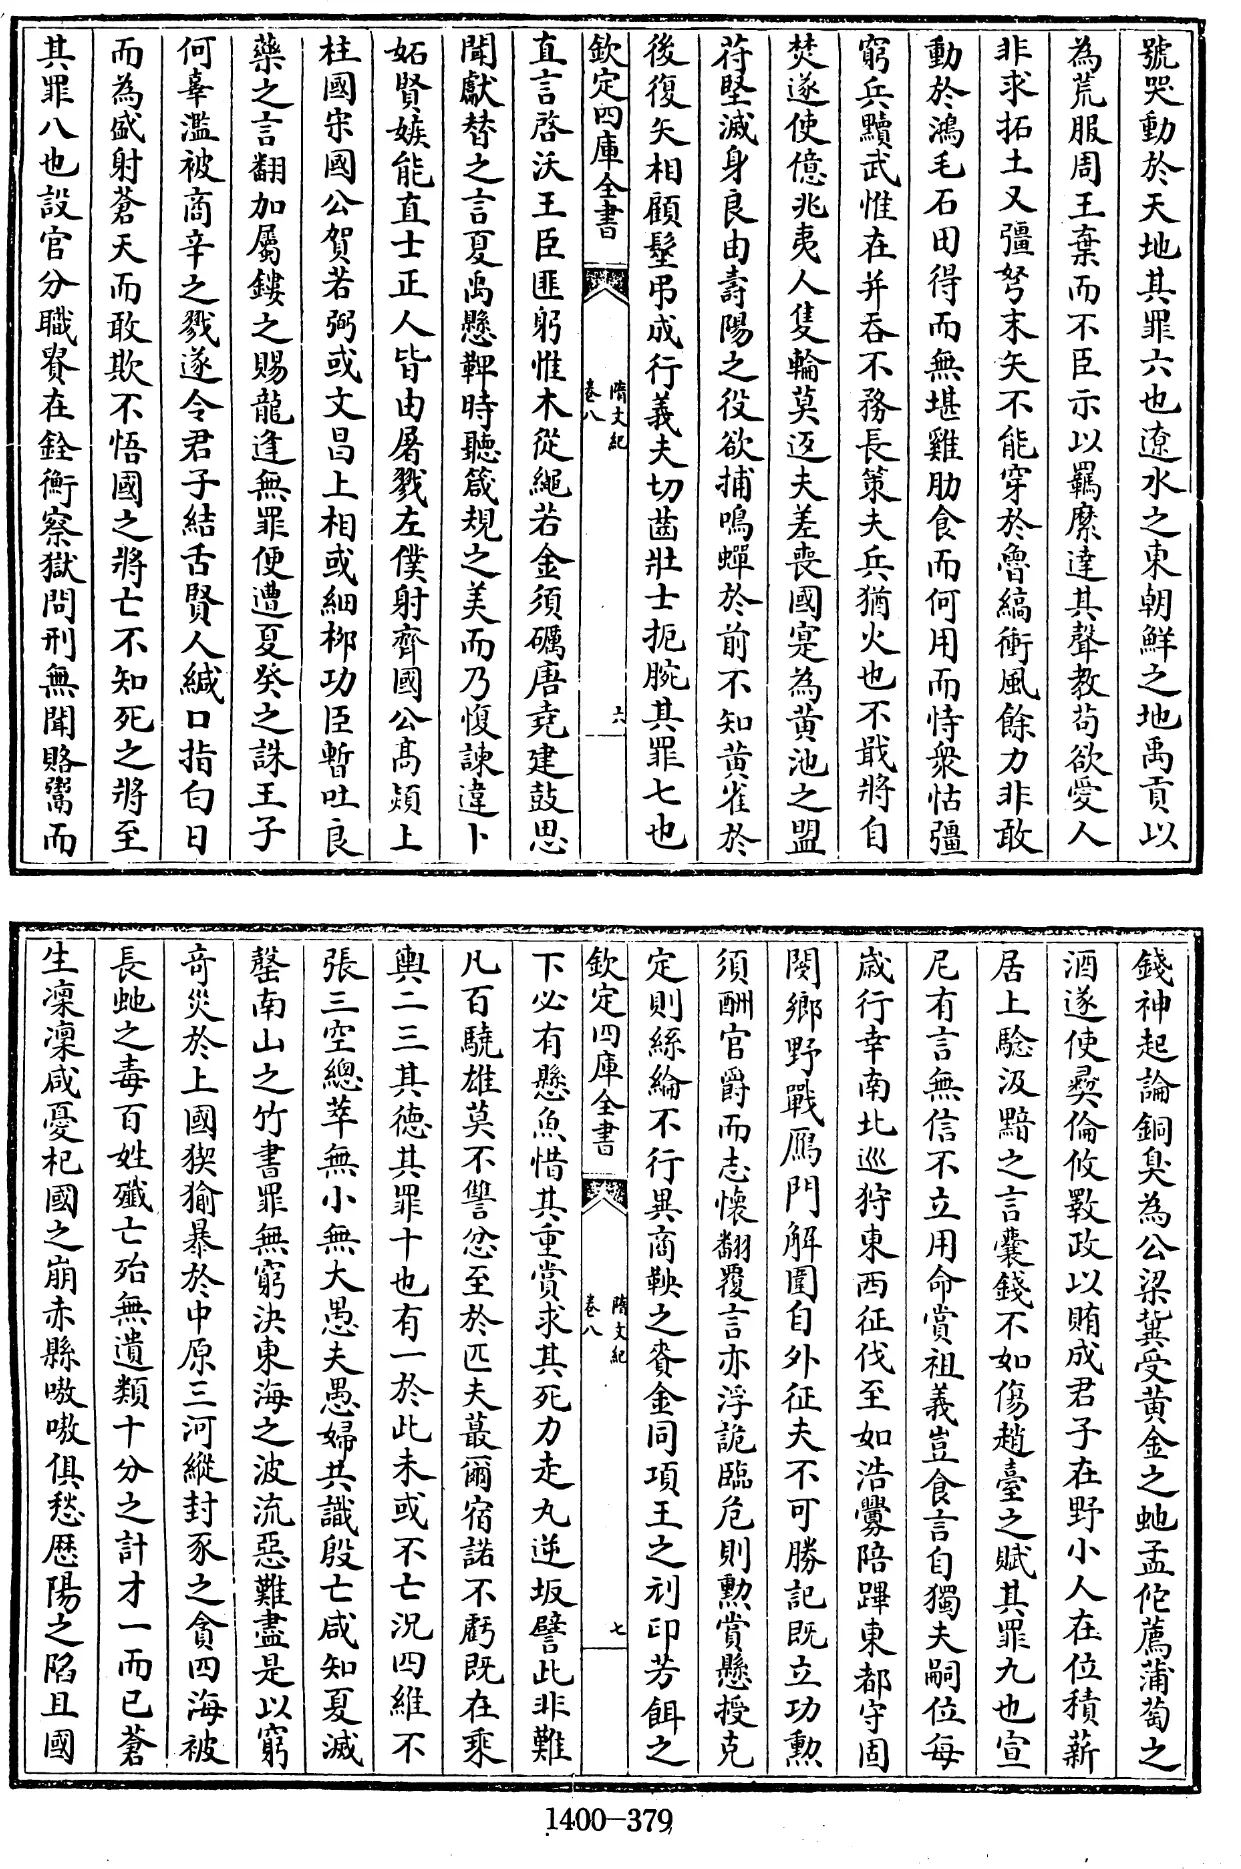 號哭動於天地其罪六也遼水之東朝鮮之地禹貢以
為荒服周王棄而不臣示以羈縻達其聲教苟欲愛人
非求拓土又彊弩末矢不能穿於魯縞衝風餘力非敢
動於鴻毛石田得而無堪雞肋食而何用而恃衆怙彊
窮兵黷武惟在并吞不務長策夫兵猶火也不戢將自
焚遂使億兆夷人隻輪莫返夫差喪國寔為黄池之盟
苻堅滅身良由壽陽之役欲捕鳴蟬於前不知黄雀於
後復矢相顧髽弔成行義夫切齒壯士扼腕其罪七也
欽定四庫全書
隋文紀
卷八
六
直言啓沃王臣匪躬惟木從繩若金須礪唐堯建鼓思
聞獻替之言夏禹懸鞞時聽箴規之美而乃愎諫違卜
妬賢嫉能直士正人皆由屠戮左僕射齊國公髙熲上
柱國宋國公賀若弼或文昌上相或細栁功臣暫吐良
藥之言翻加屬鏤之賜龍逢無罪便遭夏癸之誅王子
何辜濫被商辛之戮遂令君子結舌賢人緘口指白日
而為盛射蒼天而敢欺不悟國之將亡不知死之將至
其罪八也設官分職貴在銓衡察獄問刑無聞賂鬻而
錢神起論銅臭為公梁冀受黄金之虵孟佗薦蒲萄之
酒遂使彛倫攸斁政以賄成君子在野小人在位積薪
居上騐汲黯之言囊錢不如傷趙臺之賦其罪九也宣
尼有言無信不立用命賞祖義豈食言自獨夫嗣位每
歳行幸南北巡狩東西征伐至如浩亹陪蹕東都守固
閿鄉野戰鴈門解圍自外征夫不可勝記既立功勲
須酬官爵而志懷翻覆言亦浮詭臨危則勲賞懸授克
定則絲綸不行異商鞅之賚金同項王之刓印芳餌之
欽定四庫全書
隋文紀
卷八
七
下必有懸魚惜其重賞求其死力走丸逆坂譬此非難
凡百驍雄莫不讐忿至於匹夫蕞爾宿諾不虧既在乘
輿二三其德其罪十也有一於此未或不亡況四維不
張三空總萃無小無大愚夫愚婦共識殷亡咸知夏滅
罄南山之竹書罪無窮決東海之波流惡難盡是以窮
竒災於上國猰㺄暴於中原三河縱封豕之貪四海被
長虵之毒百姓殲亡殆無遺類十分之計才一而已蒼
生凜凜咸憂杞國之崩赤縣嗷嗷俱愁歴陽之陷且國
1400-379